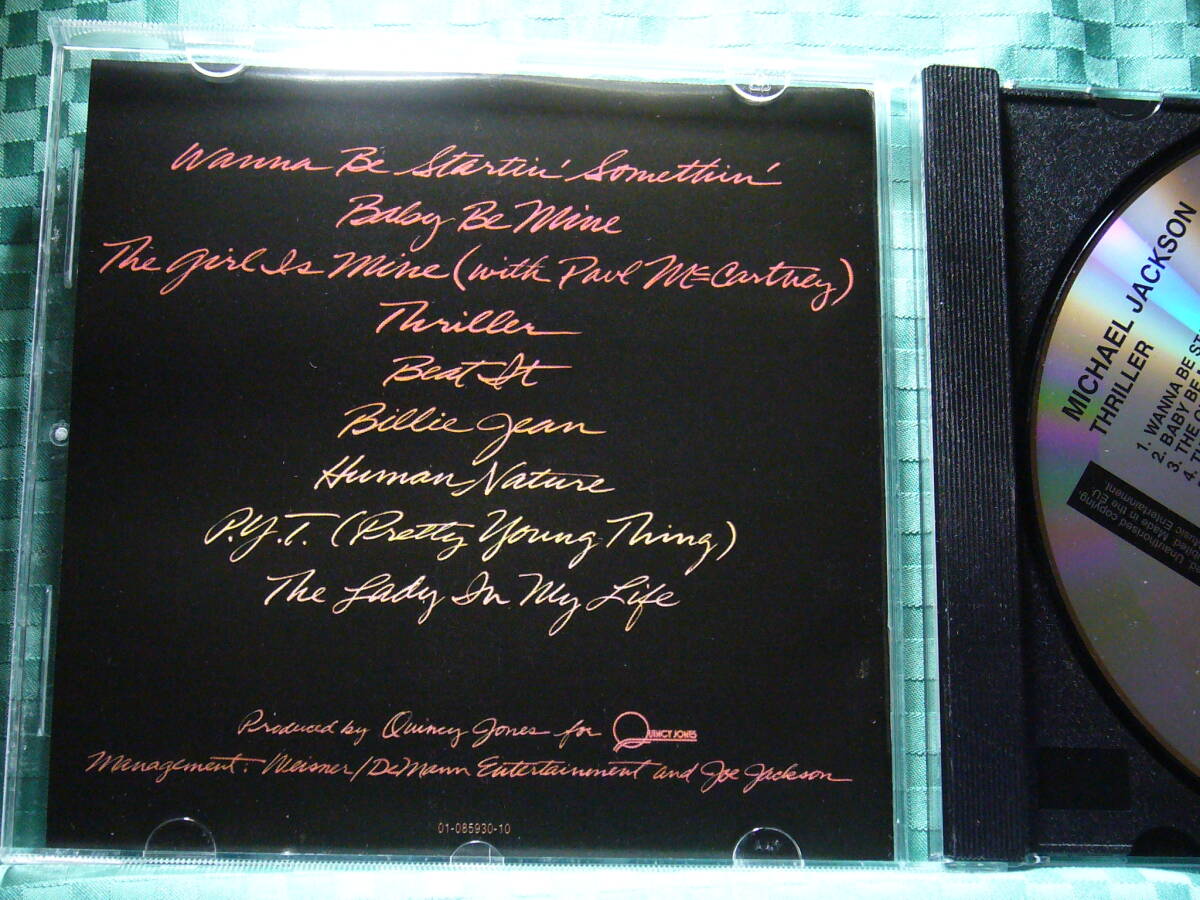 Wanna Be Startin' Somethin'
Baby Be Mine
The Girl Is Mine (with Paul McCartney)
Thriller
Beat It
Billie Jean
Human Nature
P.Y.T. (Pretty Young Thing)
The Lady In My Life
Produced by Quincy Jones for QUINCY JONES
Management: Weisner/DeMann Entertainment and Joe Jackson
01-085930-10
MICHAEL JACKSON
THRILLER
1. WANNA BE ST
2. BABY BE
3. THE
4. T
Unauthorised copying,
Made in the EU
Music Entertainment